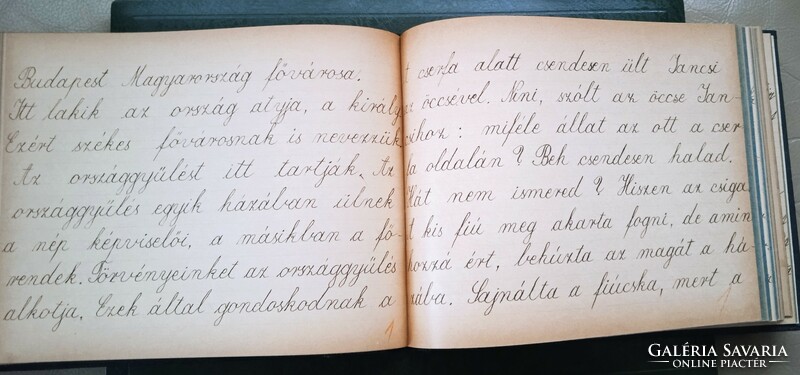 Budapest Magyarország fővárosa.
Itt lakik az ország atyja, a király
Ezért székes fővárosnak is nevezzük
Az országgyűlést itt tartják. Az
országgyűlés egyik házában ülnek
a nép képviselői, a másikban a fő-
rendek. Törvényeinket az országgyűlés
alkotja. Ezek által gondoskodnak a
1
t cserfa alatt csendesen ült Jancsi
az öccsével. Nini, szólt az öccse Jan-
csihoz: miféle állat az ott a cser-
fa oldalán? Beh csendesen halad.
Hát nem ismered? Hiszen az csiga
t kis fiú meg akarta fogni, de amin
hozzá ért, behúzta az magát a há-
zába. Sajnálta a fiúcska, mert a
1
GALÉRIA SAVARIA
ONLINE PIACTÉR